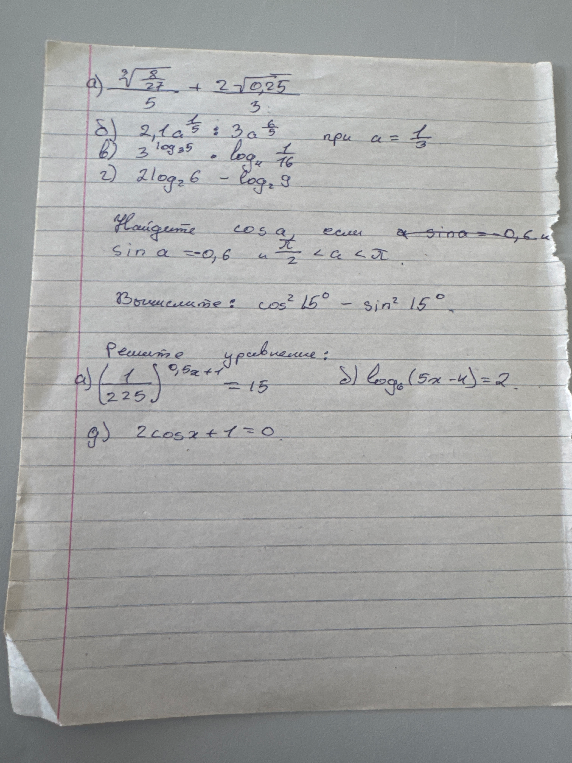 а) ∛(8/27)/5 + 2√0,25/3
б) 2,1a^(1/5) : 3a^(6/5) при a = 1/3
в) 3^(log₃5) · log₄ 1/16
г) 2log₂6 - log₂9
Найдите cos a, если a sin a = -0,6 и
sin a = -0,6 и π/2 < a < π.
Вычислите: cos² 15° - sin² 15°.
Решите уравнение:
а) (1/225)^(0,5x+1) = 15 б) log₆(5x-4) = 2.
д) 2cosx + 1 = 0.